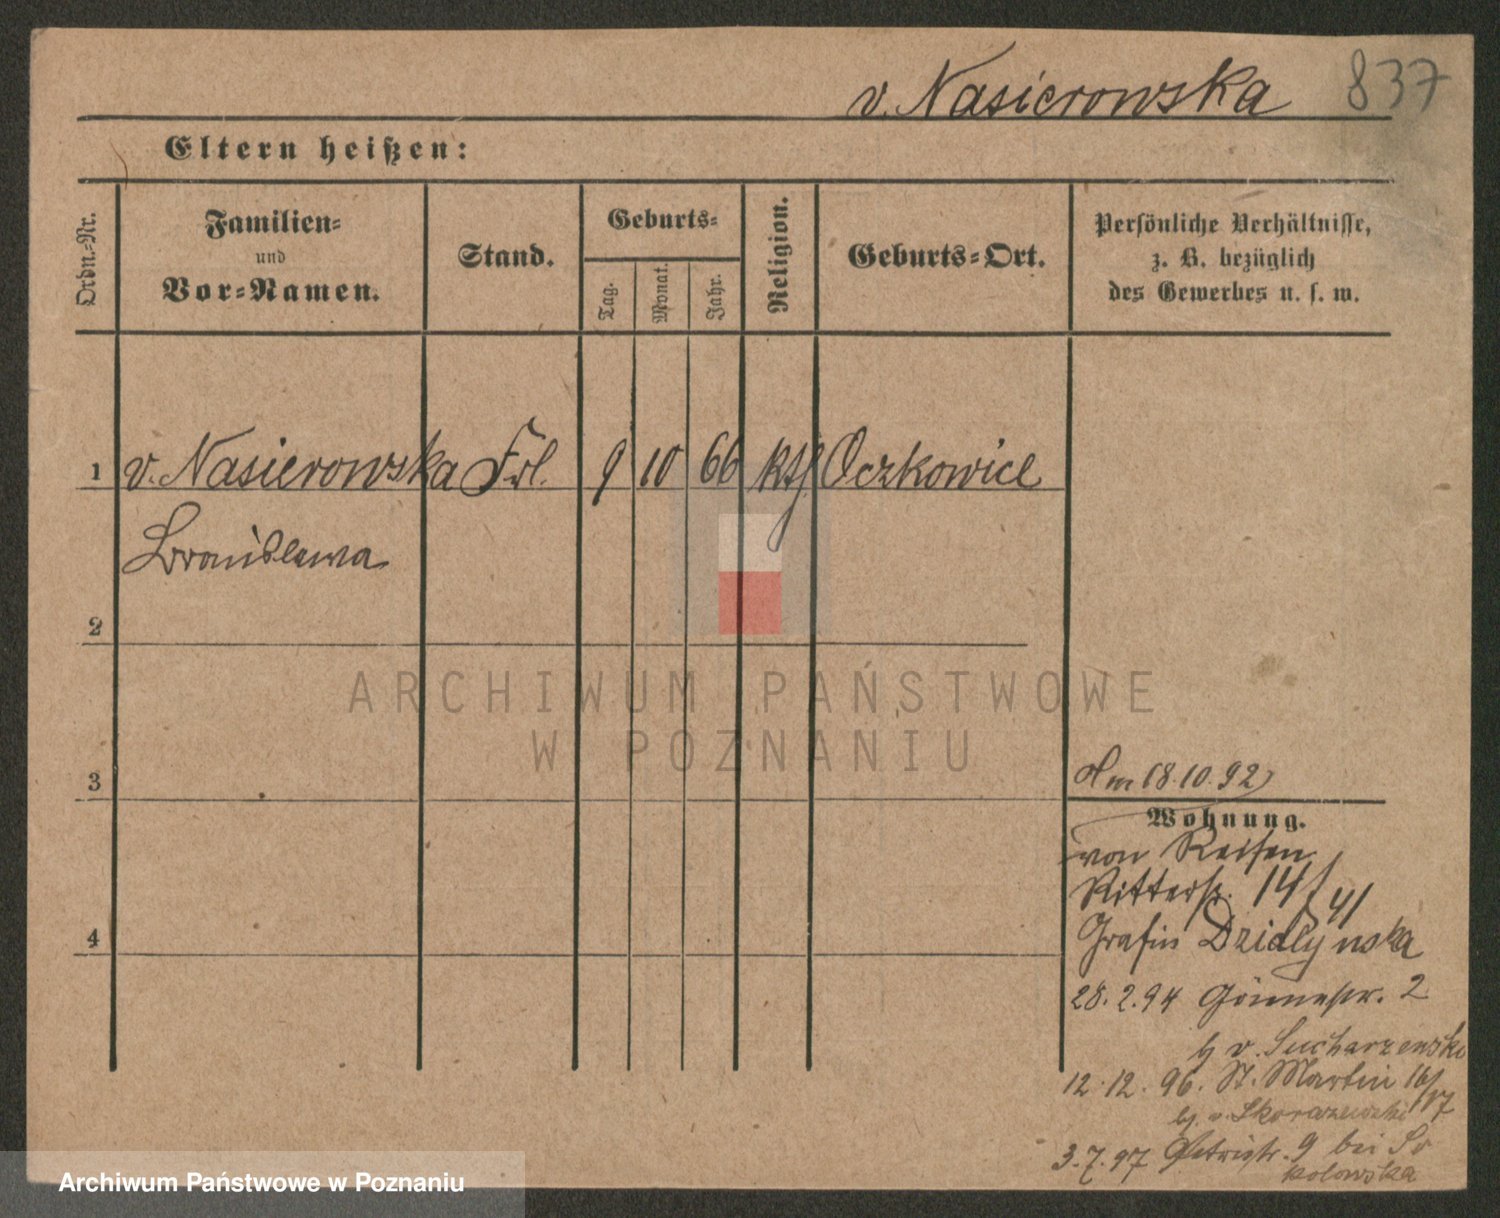 v. Nasierowska 837
Eltern heißen:
Ordn.=Nr.
Familien=
und
Vor=Namen.
Stand.
Geburts=
Tag.
Monat.
Jahr.
Religion.
Geburts=Ort.
Persönliche Verhältnisse,
z. B. bezüglich
des Gewerbes u. s. w.
1 v. Nasierowska Frl. 9 10 66 kth Oczkowice
Bronislawa
2
3
4
ARCHIWUM PAŃSTWOWE
W POZNANIU
Am 18.10.92
Wohnung.
von Reisen
Ritterstr. 14/41
Gräfin Dzialynska
28.2.94 Gönnestr. 2
bj v. Sucharzewski
12.12.96. St. Martin 16/17
bj. v. Skorazewski
3.7.97 Petristr. 9 bei So
kolowska
Archiwum Państwowe w Poznaniu